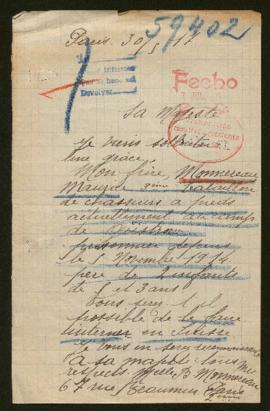 59402
Paris 30/5/17
Fecho
Devolver
Sa Majesté
Je viens solliciter
une grâce.
Mon frère, Monnereau
Maurice bataillon
de chasseurs à pieds
actuellement au camp
de
prisonnier depuis
le 5 Novembre 1914
père de 2 enfants
de 5 et 3 ans
Vous serait il
possible de le faire
interner en Suisse
Je vous en serai
à sa majesté tous mes
respects Melle B Monnereau
67 rue Beaumur Paris